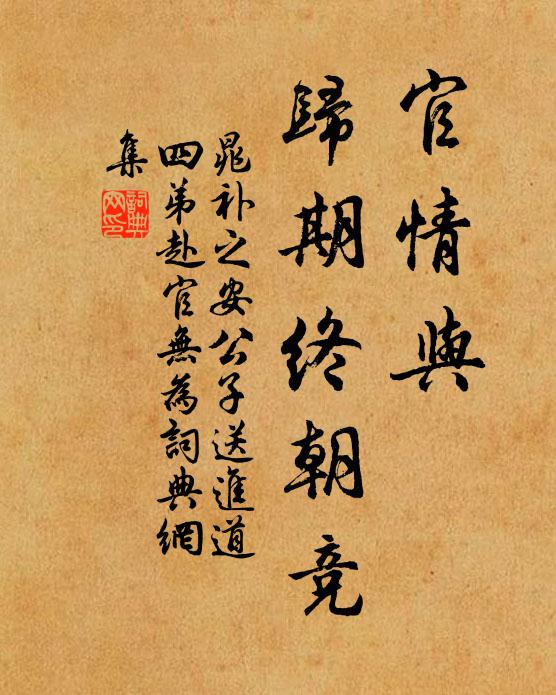 官情與
歸期終朝竞
晁补之安公子送進道
四弟赴官無為詞典網
集
詞典
网印